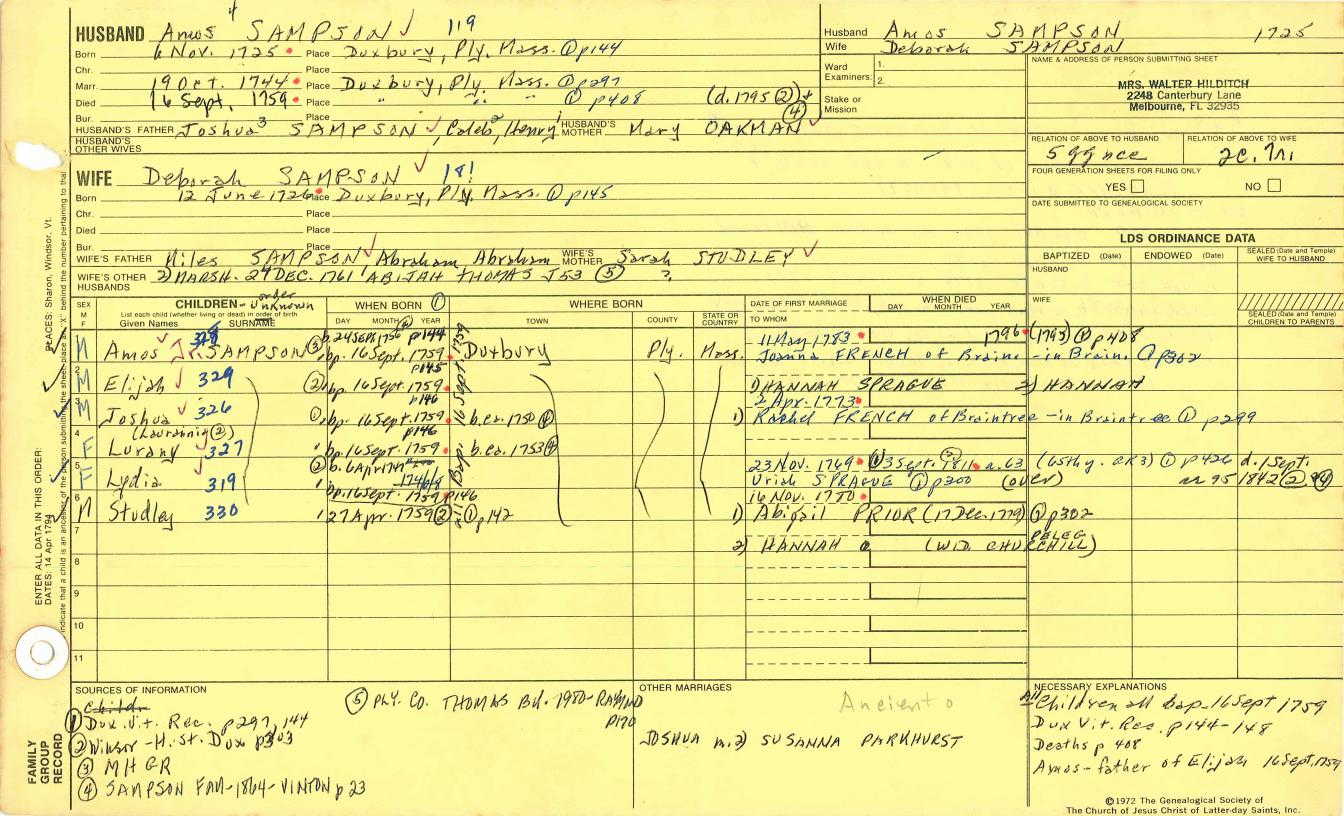 HUSBAND Amos SAMPSON 119
Born 6 Nov. 1725 Place Duxbury, Ply. Mass. ① p144
Chr. Place
Marr. 19 Oct. 1744 Place Duxbury, Ply. Mass. ① p297
Died 16 Sept. 1759 Place " " " ① p408 (d. 1795 ②) + ④
Bur. Place
HUSBAND'S FATHER Joshua³ SAMPSON, Caleb², Henry¹ HUSBAND'S MOTHER Mary OAKMAN
HUSBAND'S OTHER WIVES
WIFE Deborah SAMPSON 181
Born 12 June 1726 Place Duxbury, Ply. Mass. ① p145
Chr. Place
Died Place
Bur. Place
WIFE'S FATHER Miles SAMPSON Abraham Abraham WIFE'S MOTHER Sarah STUDLEY
WIFE'S OTHER HUSBANDS 2) MARSH. 24 DEC. 1761 ABIJAH THOMAS J53 ⑤ ?
Husband Amos SAMPSON 1725
Wife Deborah SAMPSON
Ward Examiners: 1.
2.
Stake or Mission
NAME & ADDRESS OF PERSON SUBMITTING SHEET
MRS. WALTER HILDITCH
2248 Canterbury Lane
Melbourne, FL 32935
RELATION OF ABOVE TO HUSBAND RELATION OF ABOVE TO WIFE
5 gg nce
FOUR GENERATION SHEETS FOR FILING ONLY
YES NO
DATE SUBMITTED TO GENEALOGICAL SOCIETY
LDS ORDINANCE DATA
BAPTIZED (Date) ENDOWED (Date) SEALED (Date and Temple) WIFE TO HUSBAND
HUSBAND
WIFE
SEALED (Date and Temple) CHILDREN TO PARENTS
SEX M F
CHILDREN - order unknown
List each child (whether living or dead) in order of birth
Given Names SURNAME
WHEN BORN ①
DAY MONTH YEAR
WHERE BORN
TOWN COUNTY STATE OR COUNTRY
DATE OF FIRST MARRIAGE
TO WHOM
WHEN DIED
DAY MONTH YEAR
M Amos Jr. SAMPSON 328 ③ b. 24 Sept. 1756 p144 bp. 16 Sept. 1759 Duxbury Ply. Mass. 11 May 1783 1796 (1795) ① p408
Joanna FRENCH of Brain-in Brain. ① p302
2 M Elijah 329 ② bp. 16 Sept. 1759 p145 1) HANNAH SPRAGUE 2) HANNAH
3 M Joshua 326 ① bp. 16 Sept. 1759 p146 b. ca. 1750 ④ 2 Apr. 1773
1) Rachel FRENCH of Braintree - in Braintree ① p299
4 F (Laurannia ②) Lurany 327 bp. 16 Sept. 1759 p146 b. ca. 1753 ④
5 F Lydia 319 ② b. 6 Apr 1747 1746/8 bp. 16 Sept. 1759 p146 23 Nov. 1769 3 Sept. 1811 a. 63 (65th y. GR3) ① p426 d. 1 Sept.
Uriah SPRAGUE ① p300 (over) 1842 ② ④
6 M Studley 330 27 Apr. 1759 ② ① p142 16 Nov. 1780
1) Abigail PRIOR (17 Dec. 1779) ① p302
7
2) HANNAH (WID. PELEG CHURCHILL)
8
9
10
11
all Bapt. 16 Sept 1759
SOURCES OF INFORMATION
① Dux. Vit. Rec. p297, 144
② Winsor - Hist. Dux p303
③ MHGR
④ SAMPSON FAM-1864-VINTON p23
⑤ PLY. CO. THOMAS Bd. 1980-RAYMOND
p170
OTHER MARRIAGES
Ancient o
JOSHUA m. 2) SUSANNA PARKHURST
NECESSARY EXPLANATIONS
All Children all bap. 16 Sept 1759
Dux Vit. Rec. p144-148
Deaths p 408
Amos-father of Elijah 16 Sept. 1759
©1972 The Genealogical Society of
The Church of Jesus Christ of Latter-day Saints, Inc.
FAMILY GROUP RECORD
ENTER ALL DATA IN THIS ORDER:
DATES: 14 Apr 1794
PLACES: Sharon, Windsor, Vt.